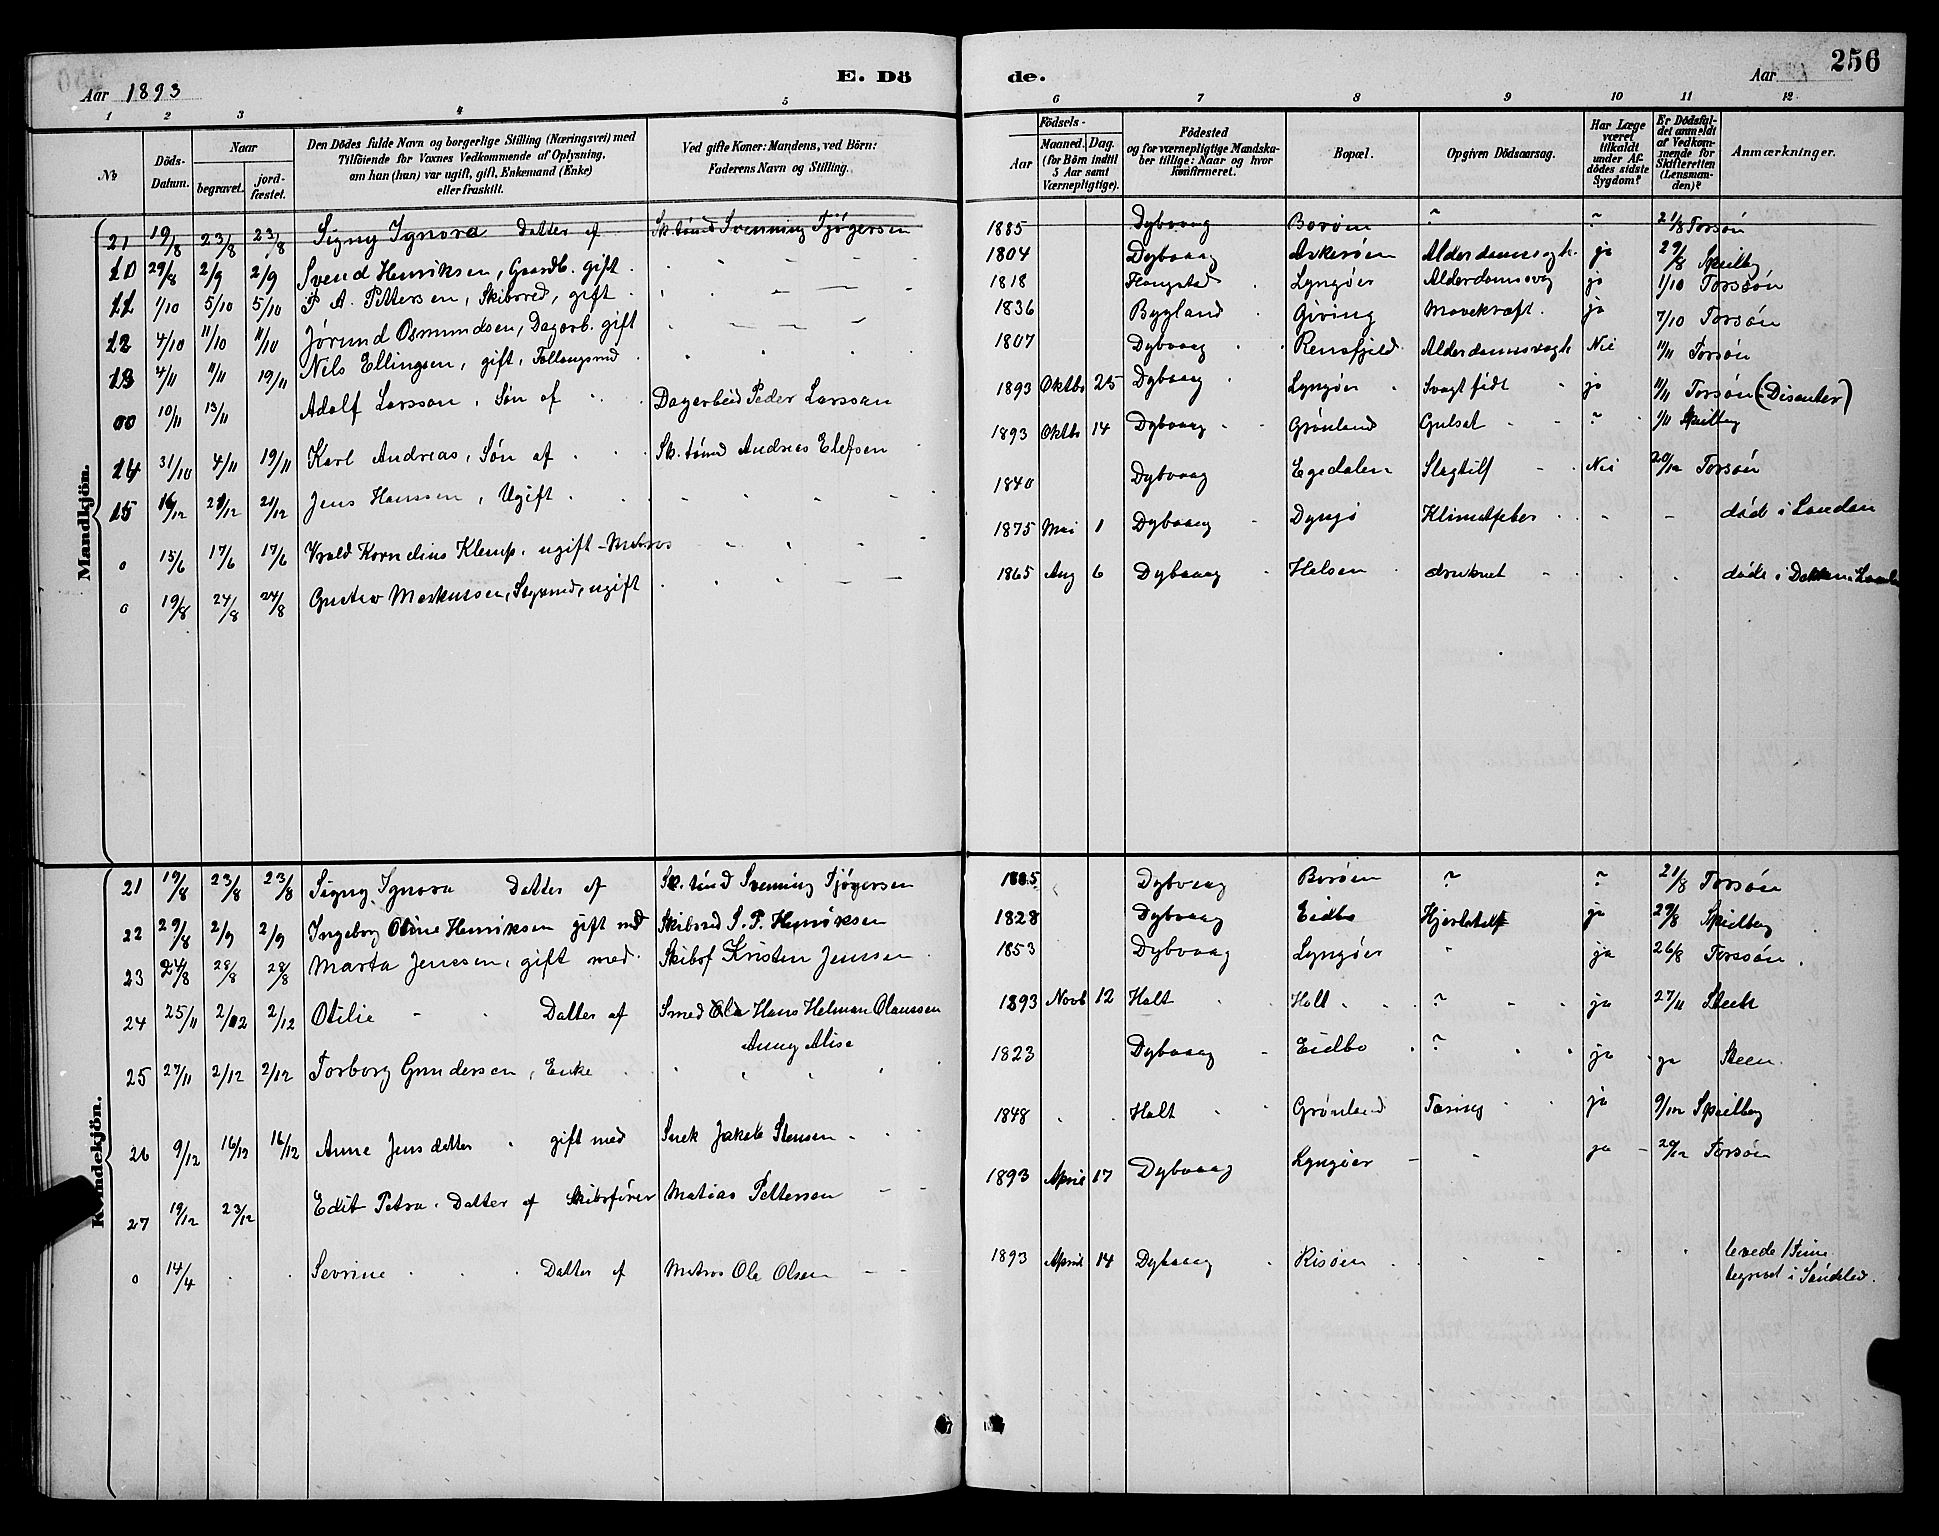 Aar 1893 E. Dö de. Aar 256
1 2 3 4 5 6 7 8 9 10 11 12
№ Döds-Datum. Naar begravet. jord-fæstet. Den Dödes fulde Navn og borgerlige Stilling (Næringsvei) med Tilföiende for Voxnes Vedkommende af Oplysning, om han (hun) var ugift, gift, Enkemand (Enke) eller fraskilt. Ved gifte Koner: Mandens, ved Börn: Faderens Navn og Stilling. Födsels- Aar Maaned. Dag. (for Börn indtil 5 Aar samt Værnepligtige). Födested og for værnepligtige Mandskaber tillige: Naar og hvor konfirmeret. Bopæl. Opgiven Dödsaarsag. Har Læge været tilkaldt under Afdödes sidste Sygdom? Er Dödsfaldet anmeldt af Vedkommende for Skifteretten (Lensmanden)? Anmærkninger.
Mandkjön.
21 19/8 23/8 23/8 Signy Ignora Datter af Sk. tømd Svenning Tjøgersen 1885 Dybvaag Borøen ? ? 21/8 Torsøn
10 29/8 2/9 2/9 Svend Henriksen, Gaardb. gift 1804 Dybvaag Askerøen Alderdomssvagh. ja 29/8 Speilby
11 1/10 5/10 5/10 P. A. Pettersen, Skibsred, gift 1818 Flangstad Lyngøer Alderdomssvag ja 1/10 Torssøn
12 4/10 11/10 11/10 Jørund Osmundsen, Dagarb. gift 1836 Bygland Giving Mavekræft. ja 7/10 Torsøn
13 4/11 11/11 19/11 Nils Ellingsen, gift, 1807 Dybvaag Rensfjeld Alderdomssvagh Nei 11/11 Torsøn
00 10/11 13/11 Adolf Larsson, Søn af Dagarbeid Peder Larssen 1893 Oktb 25 Dybvaag Lyngøer Svagt født ja 11/11 Torsøn (Disenter)
14 31/10 4/11 19/11 Karl Andreas, Søn af Sk. tømd Andreas Elefsen 1893 Oktb 14 Dybvaag Grønland Gulsot ? 1/11 Speilby
15 16/12 21/12 21/12 Jens Hanssen, Ugift 1840 Dybvaag Egedalen Slagtilf Nei 20/12 Torsøn
0 15/6 17/6 17/6 Kornelius Klemp, ugift - Matros 1875 Mai 1 Dybvaag Dynjø Klimatfeber døde i London
0 19/8 24/8 24/8 Gustav Markussen, Styrmd, ugift 1865 Aug 6 Dybvaag Holsen druknet døde i
Kvindekjön.
21 19/8 23/8 23/8 Signy Ignora Datter af Sk. tømd Svenning Tjøgersen 1885 Dybvaag Borøen ? ? 21/8 Torsøn
22 29/8 2/9 2/9 Ingeborg Oline Henriksen gift md Skibsred S. P. Henriksen 1828 Dybvaag Eidbo ja 29/8 Speilby
23 24/8 28/8 28/8 Marta Jenssen, gift med Skibsf Kristen Jenssen 1853 Dybvaag Lyngøer " ja 26/8 Torssøn.
24 25/11 2/12 2/12 Otilie Datter af Smed Ola Hans Helman Olaussen 1893 Novb 12 Holt Holt ? ja 27/11 Steen
Anny Alise
25 27/11 2/12 2/12 Torborg Gundersen, Enke 1823 Dybvaag Eidbo ? ja ja Steen
26 9/12 16/12 16/12 Anne Jensdatter gift med Snek Jakob Stensen 1848 Holt Grønland Tæring ja 9/12 Speilby
27 19/12 23/12 Edit Petra. Datter af Skibsfører Matias Pettersen 1893 April 17 Dybvaag Lyngøer ja 20/12 Torsøn
0 14/4 Sevrine Datter af Matros Ole Olsen 1893 April 14 Dybvaag Risøen levede 1 Time
begravet i Søndeled.